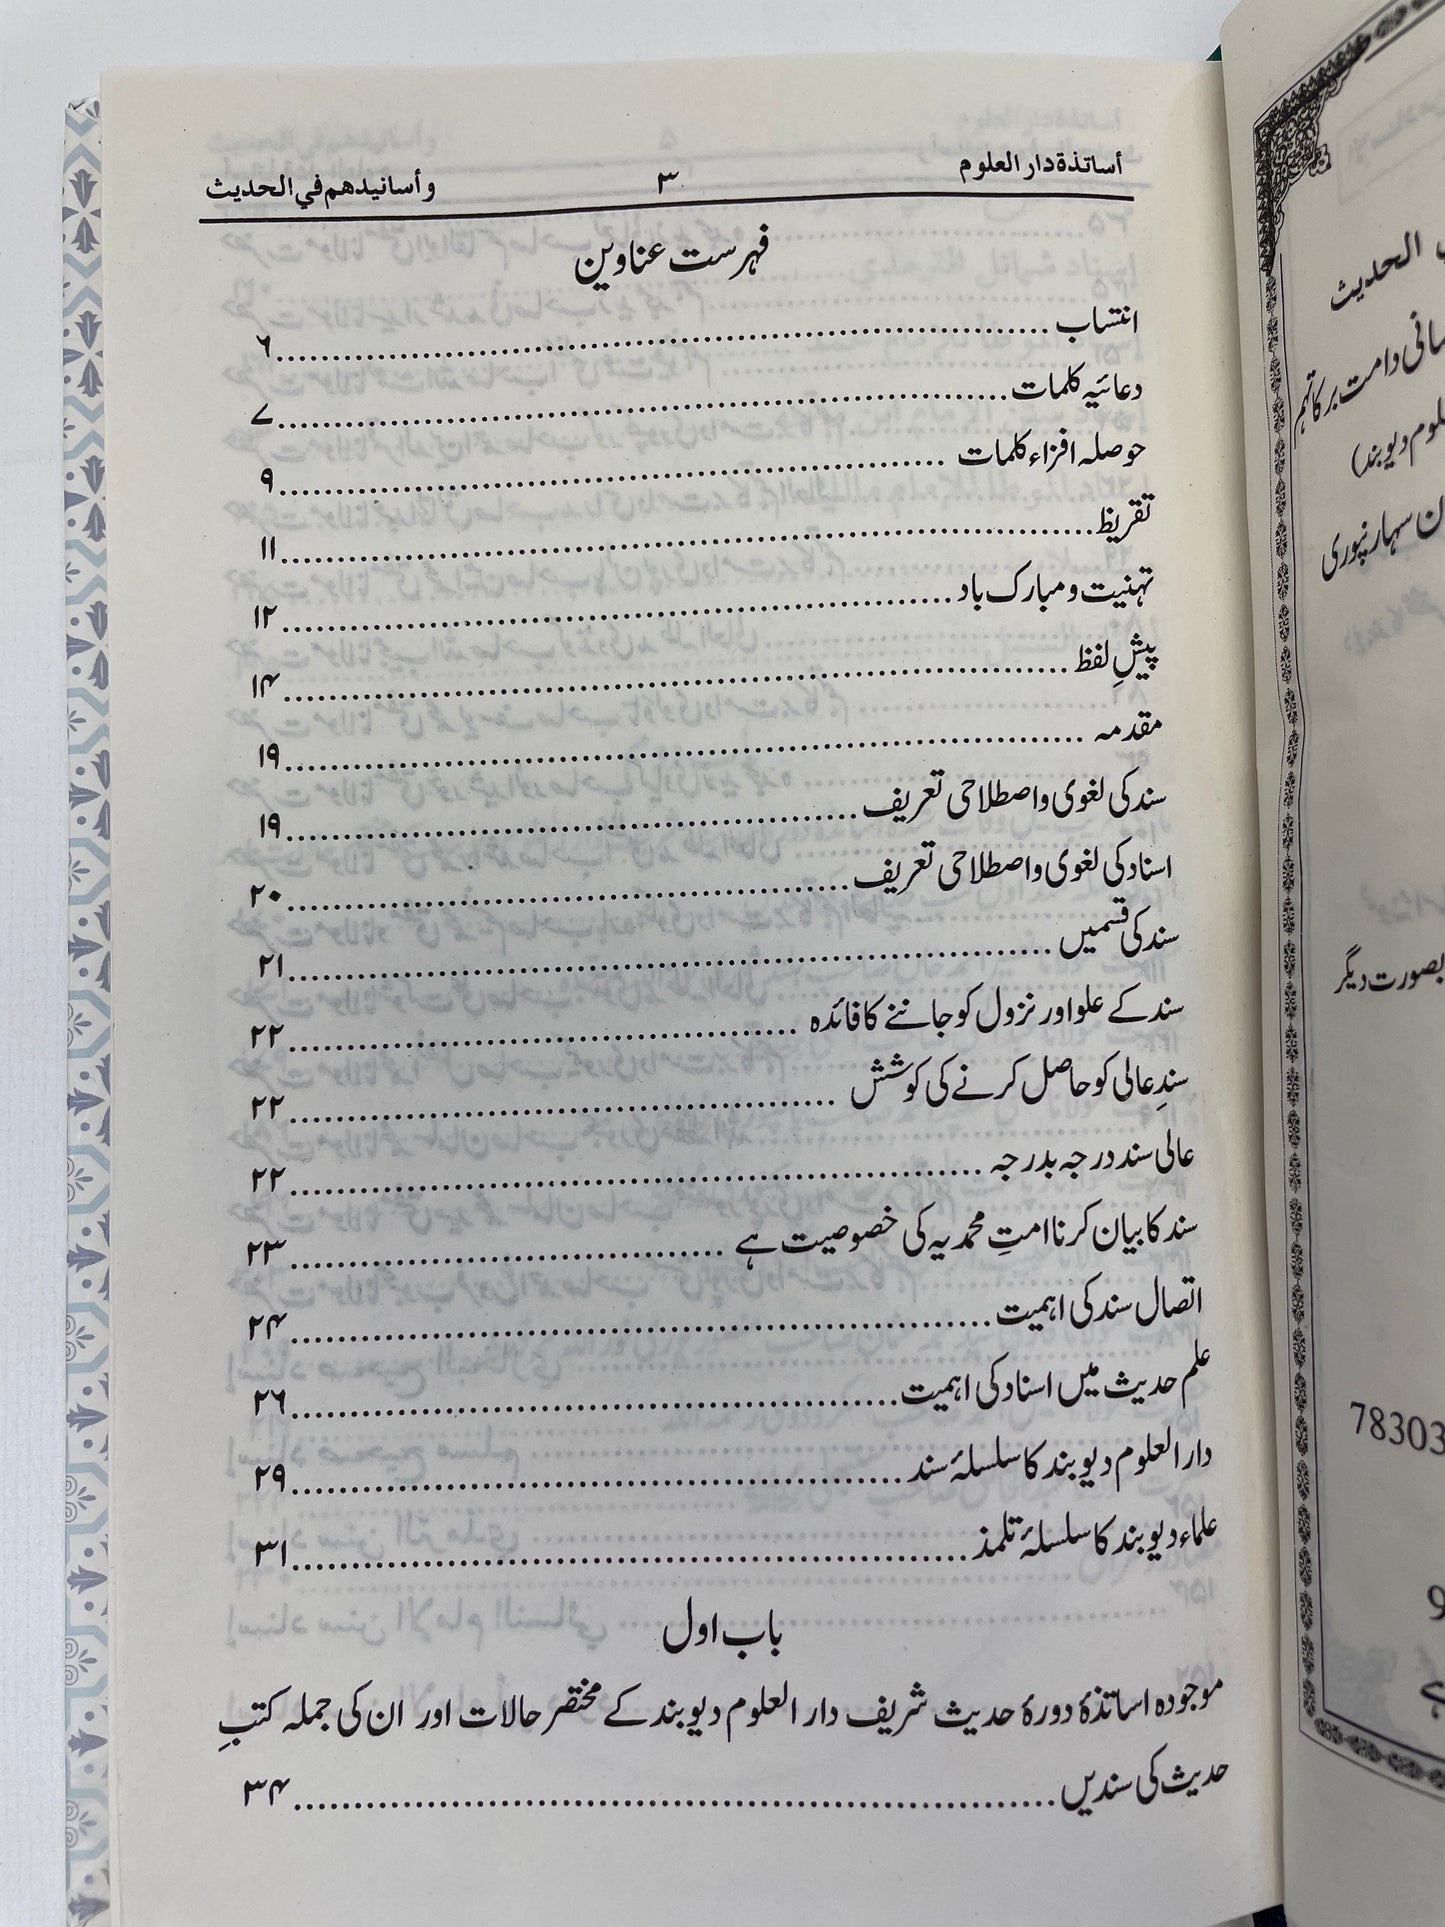 أساتذة دار العلوم ۳ وأسانيدهم في الحديث
فہرست عناوین
انتساب ........ ۶
دعائیہ کلمات ........ ۷
حوصلہ افزاء کلمات ........ ۹
تقریظ ........ ۱۱
تہنیت و مبارک باد ........ ۱۲
پیشِ لفظ ........ ۱۴
مقدمہ ........ ۱۹
سند کی لغوی و اصطلاحی تعریف ........ ۱۹
اسناد کی لغوی و اصطلاحی تعریف ........ ۲۰
سند کی قسمیں ........ ۲۱
سند کے علو اور نزول کو جاننے کا فائدہ ........ ۲۲
سندِ عالی کو حاصل کرنے کی کوشش ........ ۲۲
عالی سند درجہ بدرجہ ........ ۲۲
سند کا بیان کرنا امتِ محمدیہ کی خصوصیت ہے ........ ۲۳
اتصال سند کی اہمیت ........ ۲۴
علم حدیث میں اسناد کی اہمیت ........ ۲۶
دار العلوم دیوبند کا سلسلۂ سند ........ ۲۹
علماء دیوبند کا سلسلۂ تلمذ ........ ۳۱
باب اول
موجودہ اساتذۂ دورۂ حدیث شریف دار العلوم دیوبند کے مختصر حالات اور ان کی جملہ کتبِ
حدیث کی سندیں ........ ۳۴
الحدیث
دامت برکاتہم
لوم دیوبند)
ان سہارنپوری
بصورت دیگر
78303
9